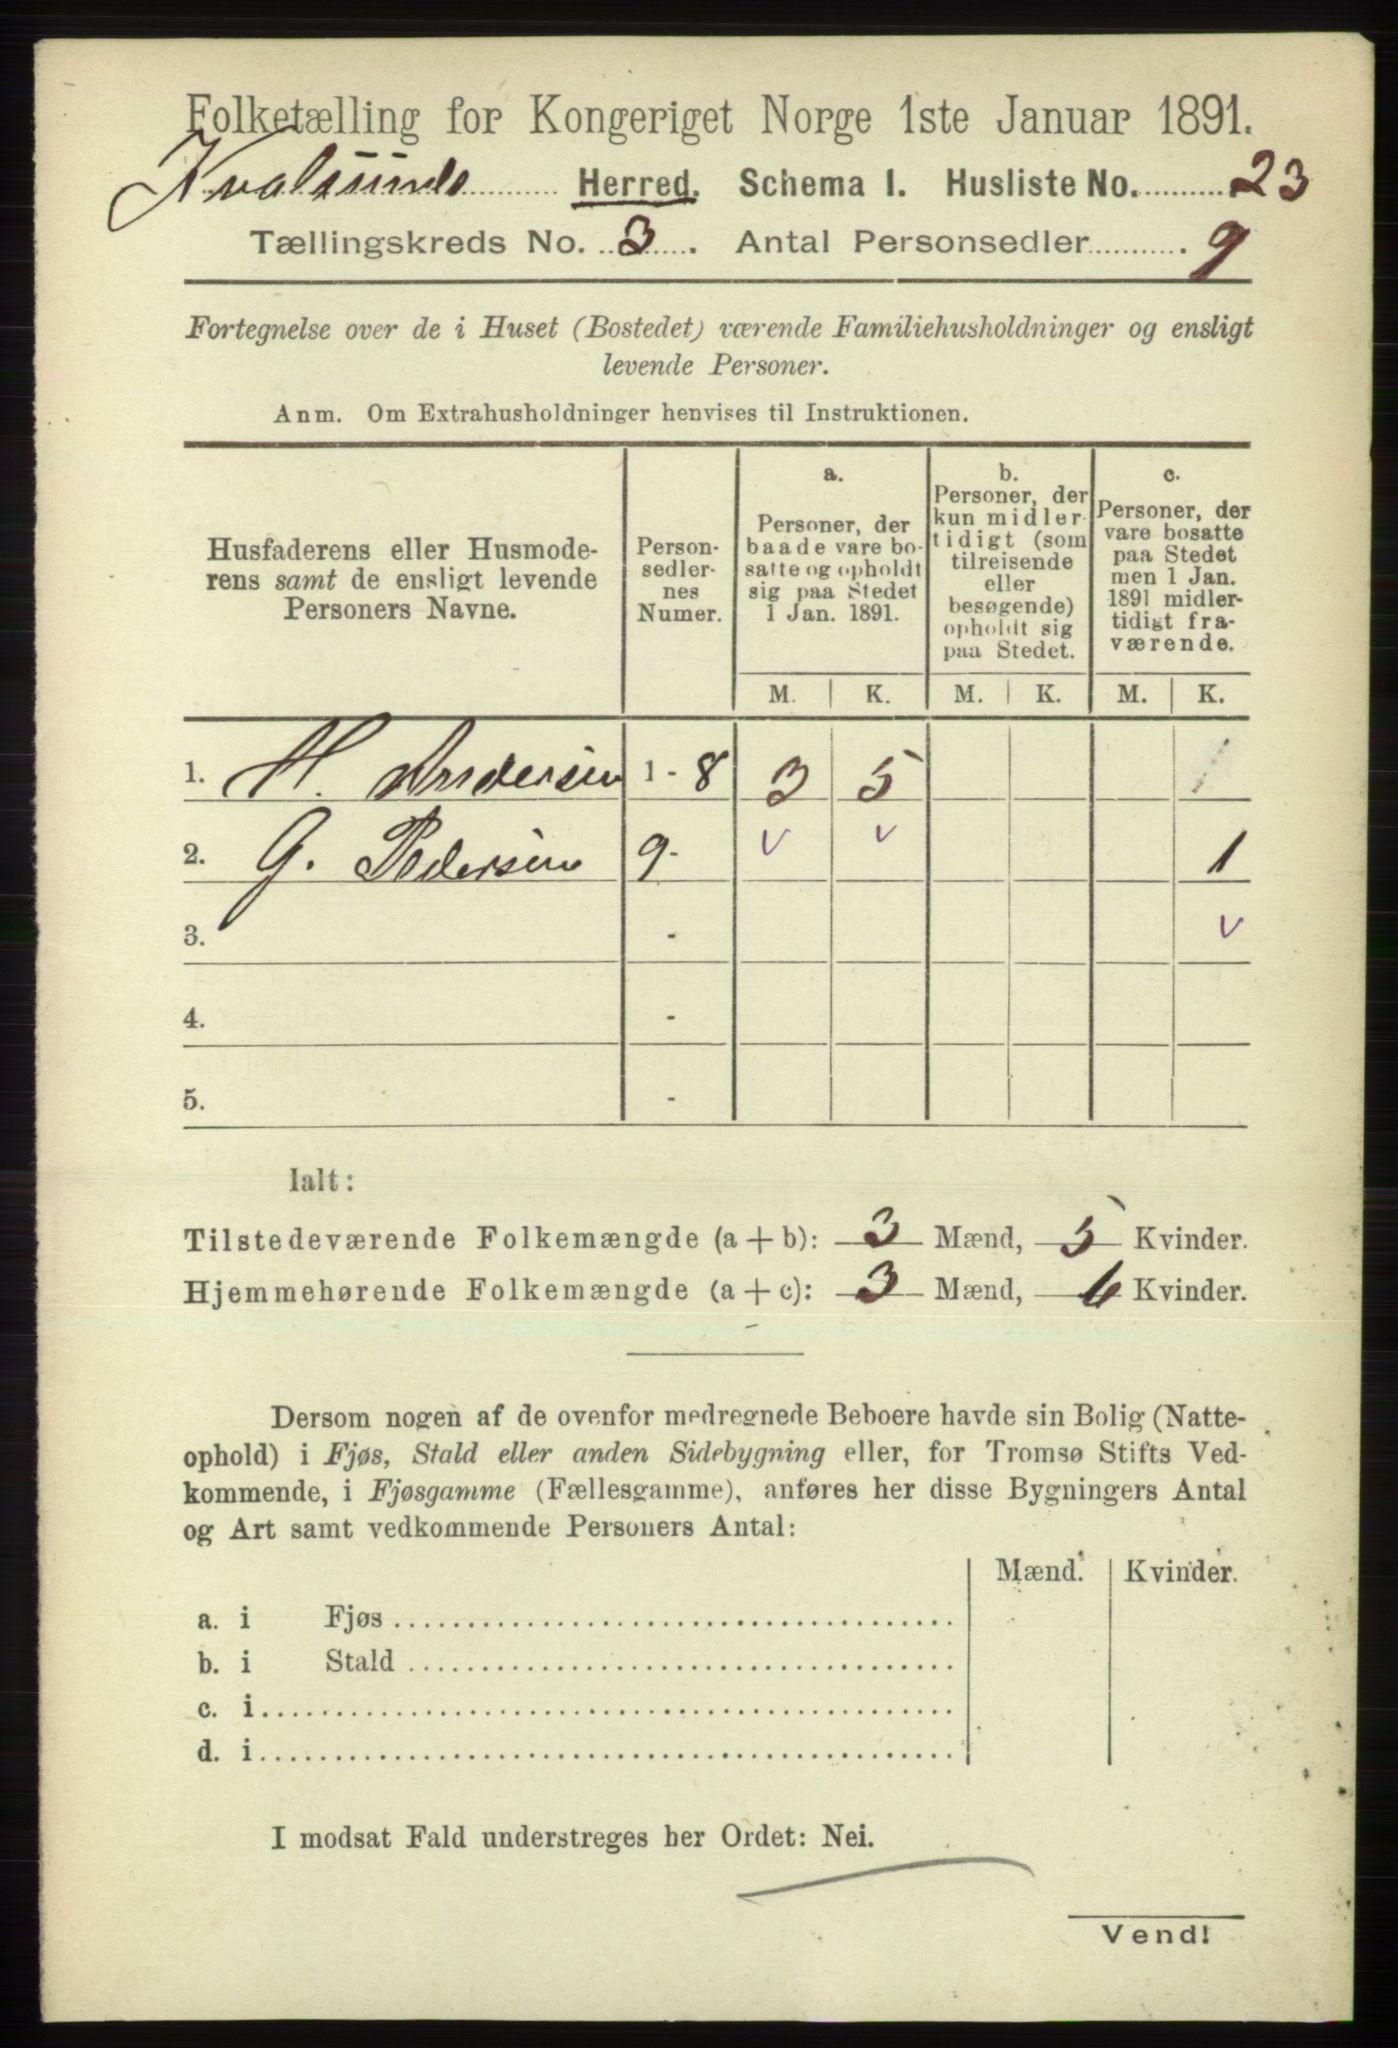 Folketælling for Kongeriget Norge 1ste Januar 1891.
Kvalsunds Herred. Schema 1. Husliste No. 23
Tællingskreds No. 3. Antal Personsedler 9
Fortegnelse over de i Huset (Bostedet) værende Familiehusholdninger og ensligt
levende Personer.
Anm. Om Extrahusholdninger henvises til Instruktionen.
Husfaderens eller Husmode-
rens samt de ensligt levende
Personers Navne.
Person-
sedler-
nes
Numer.
a.
Personer, der
baade vare bo-
satte og opholdt
sig paa Stedet
1 Jan. 1891.
b.
Personer, der
kun midler-
tidigt (som
tilreisende
eller
besøgende)
opholdt sig
paa Stedet.
c.
Personer, der
vare bosatte
paa Stedet
men 1 Jan.
1891 midler-
tidigt fra-
værende.
M. K. M. K. M. K.
1. H. Andersen 1 - 8 3 5 1
2. G. Pedersen 9 - v v 1
3. - v
4. -
5. -
Ialt:
Tilstedeværende Folkemængde (a + b): 3 Mænd, 5 Kvinder.
Hjemmehørende Folkemængde (a + c): 3 Mænd, 6 Kvinder.
Dersom nogen af de ovenfor medregnede Beboere havde sin Bolig (Natte-
ophold) i Fjøs, Stald eller anden Sidebygning eller, for Tromsø Stifts Ved-
kommende, i Fjøsgamme (Fællesgamme), anføres her disse Bygningers Antal
og Art samt vedkommende Personers Antal:
Mænd. Kvinder.
a. i Fjøs
b. i Stald
c. i
d. i
I modsat Fald understreges her Ordet: Nei.
Vend!